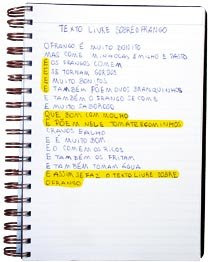 TEXTO LIVRE SOBRE O FRANGO
O FRANGO É MUITO BONITO
MAS COME MINHOCAS E MILHO E PASTO
E OS FRANGOS COMEM
E SE TORNAM GORDOS
E MUITO BONITOS
E TAMBÉM PÕEM OVOS BRANQUINHOS
E TAMBÉM O FRANGO SE COME
E MUITO SABOROSO
QUE BOM COM MOLHO
E PÕEM NELE TOMATE E COMINHOS
CRAVOS E ALHO
E É MUITO BOM
E O COMEM OS RICOS
E TAMBÉM OS FRITAM
E TAMBÉM TOMAM ÁGUA
E ASSIM SE FAZ O TEXTO LIVRE SOBRE
O FRANGO